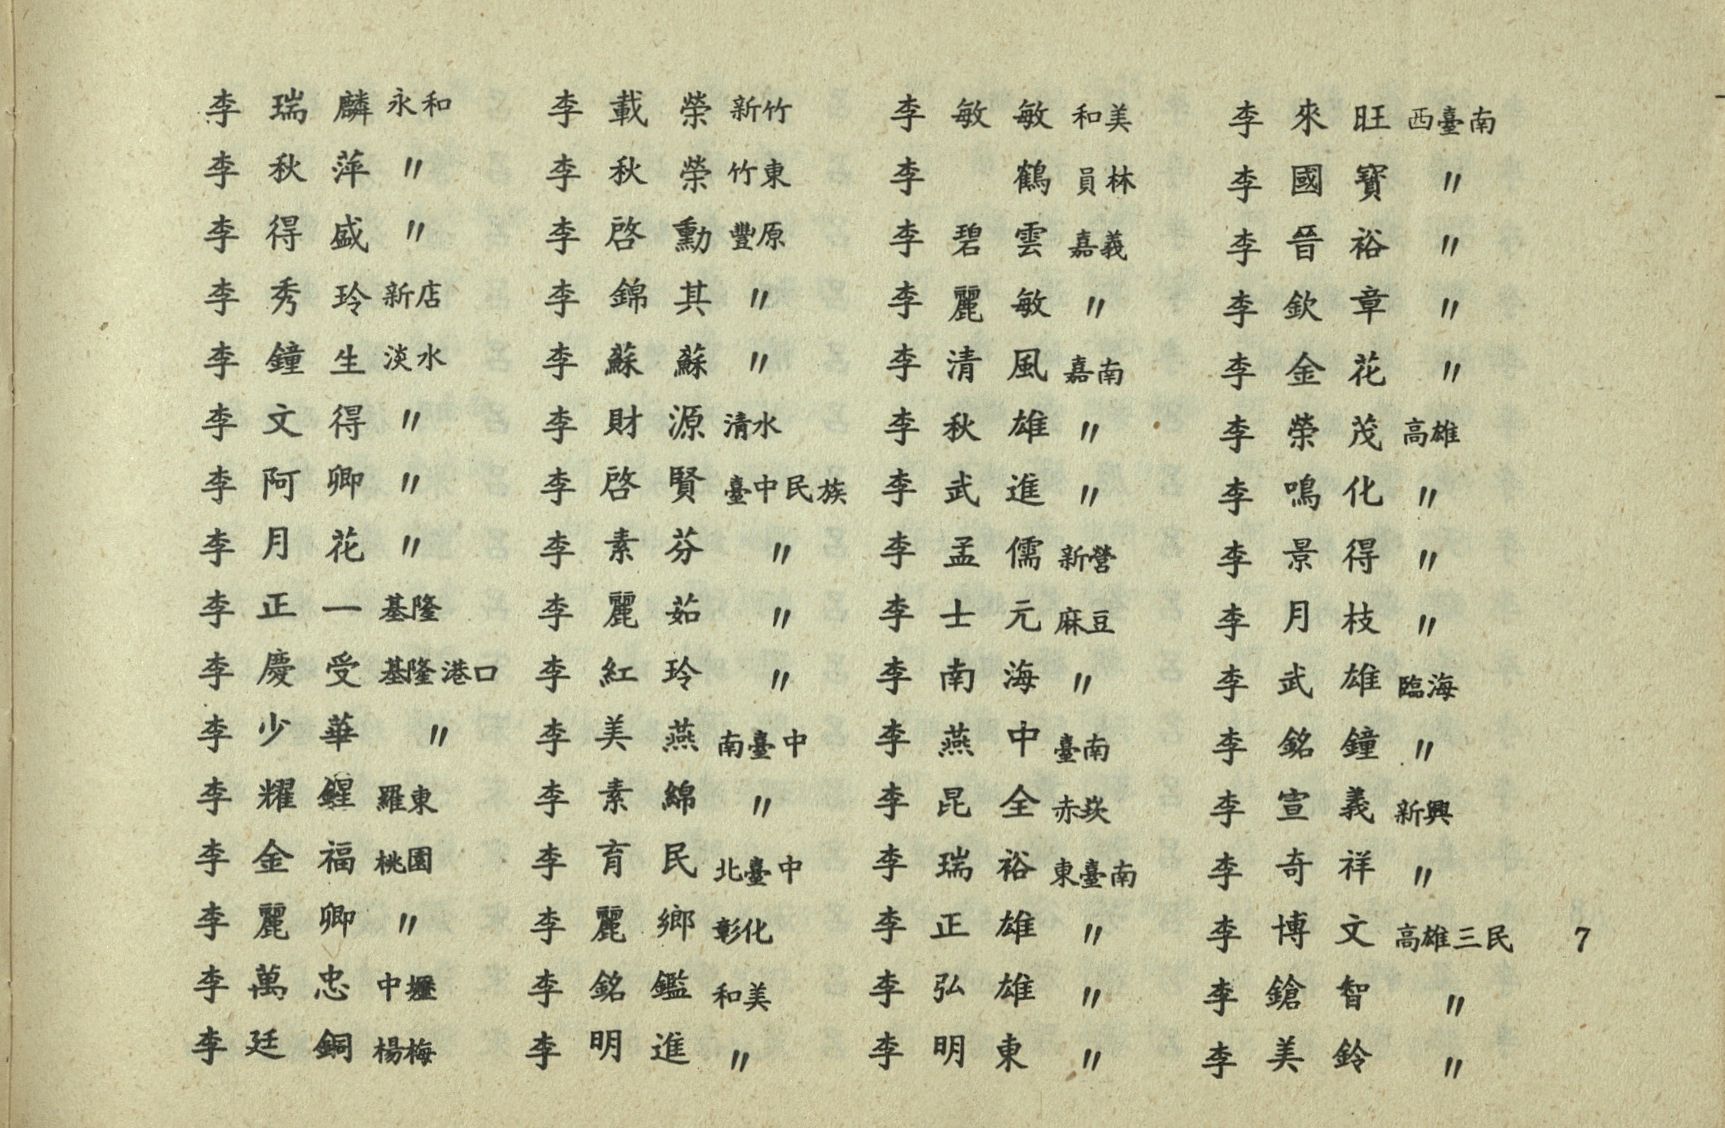 李瑞麟 永和
李秋萍 〃
李得盛 〃
李秀玲 新店
李鐘生 淡水
李文得 〃
李阿卿 〃
李月花 〃
李正一 基隆
李慶受 基隆港口
李少華 〃
李耀鋥 羅東
李金福 桃園
李麗卿 〃
李萬忠 中壢
李廷銅 楊梅
李載榮 新竹
李秋榮 竹東
李啓勳 豐原
李錦其 〃
李蘇蘇 〃
李財源 清水
李啓賢 臺中民族
李素芬 〃
李麗茹 〃
李紅玲 〃
李美燕 南臺中
李素綿 〃
李育民 北臺中
李麗鄉 彰化
李銘鑑 和美
李明進 〃
李敏敏 和美
李 鶴 員林
李碧雲 嘉義
李麗敏 〃
李清風 嘉南
李秋雄 〃
李武進 〃
李孟儒 新營
李士元 麻豆
李南海 〃
李燕中 臺南
李昆全 赤崁
李瑞裕 東臺南
李正雄 〃
李弘雄 〃
李明東 〃
李來旺 西臺南
李國寶 〃
李晉裕 〃
李欽章 〃
李金花 〃
李榮茂 高雄
李鳴化 〃
李景得 〃
李月枝 〃
李武雄 臨海
李銘鐘 〃
李宣義 新興
李奇祥 〃
李博文 高雄三民
李鎗智 〃
李美鈴 〃
7